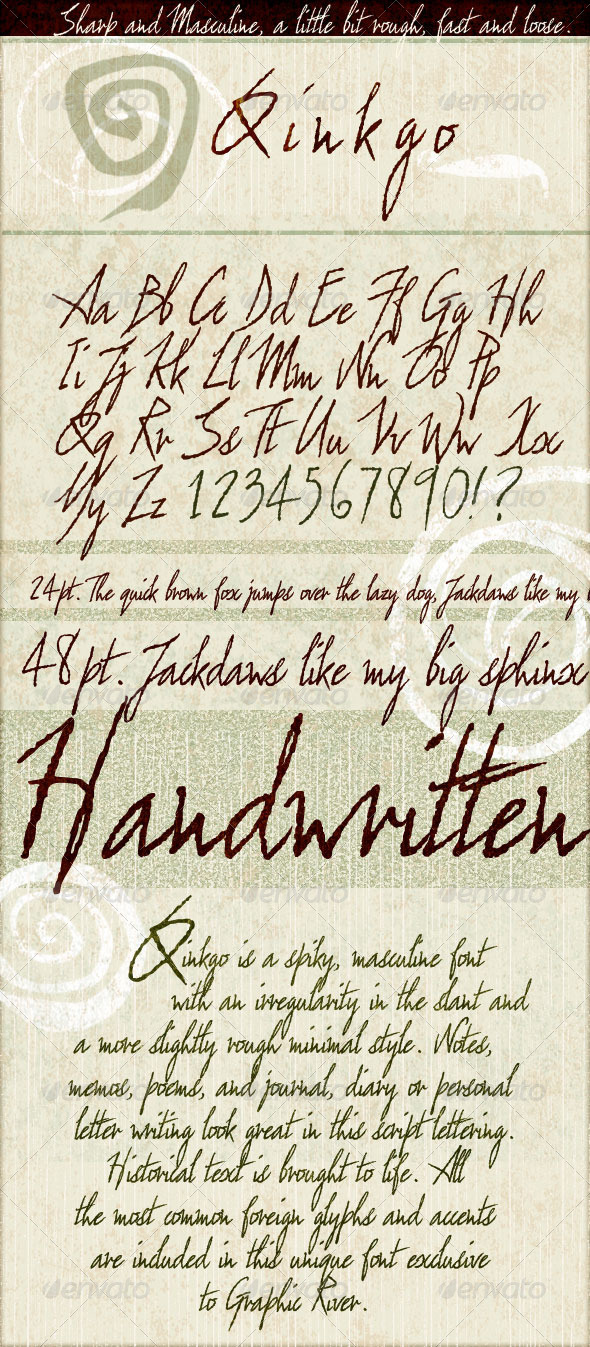 Sharp and Masculine, a little bit rough, fast and loose.
Qinkgo
Aa Bb Cc Dd Ee Ff Gg Hh
Ii Jj Kk Ll Mm Nn Oo Pp
Qq Rr Ss Tt Uu Vv Ww Xx
Yy Zz 1234567890!?
24pt. The quick brown fox jumps over the lazy dog, Jackdaws like my
48pt. Jackdaws like my big sphinx
Handwritten
Qinkgo is a spiky, masculine font
with an irregularity in the slant and
a more slightly rough minimal style. Notes,
memos, poems, and journal, diary or personal
letter writing look great in this script lettering.
Historical text is brought to life. All
the most common foreign glyphs and accents
are included in this unique font exclusive
to Graphic River.